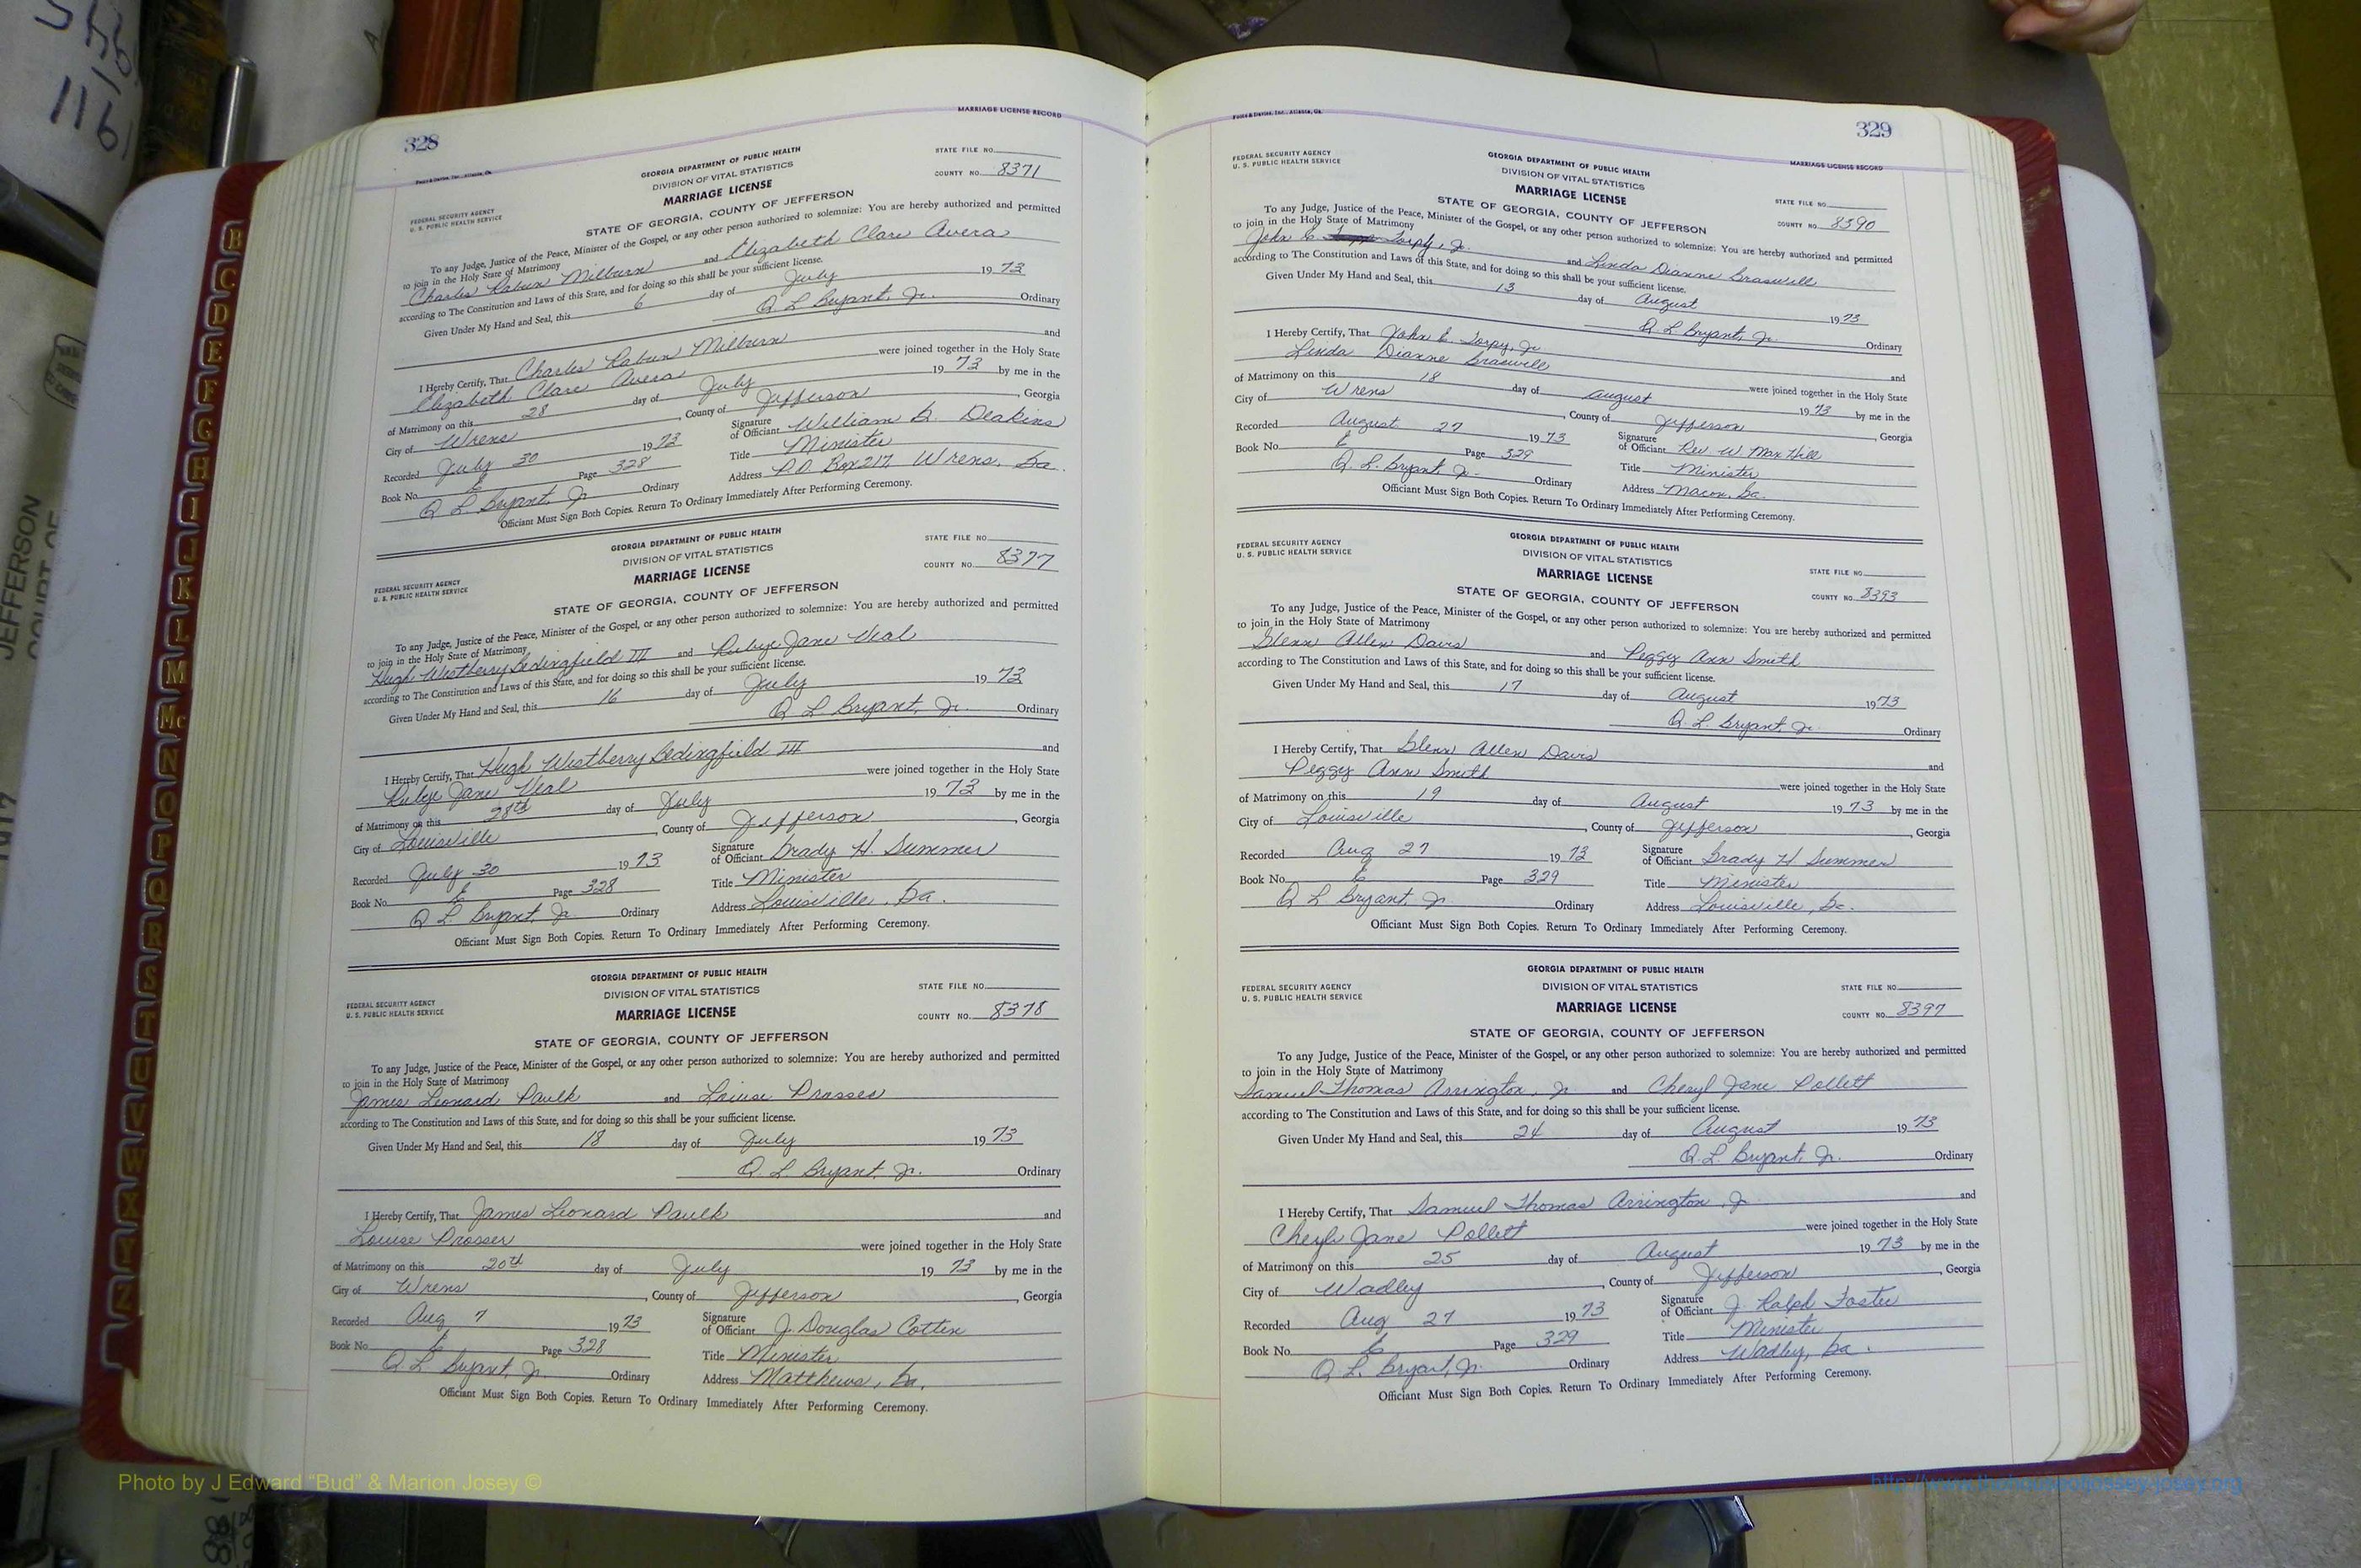 328
MARRIAGE LICENSE RECORD
Foote & Davies, Inc., Atlanta, Ga.
GEORGIA DEPARTMENT OF PUBLIC HEALTH
DIVISION OF VITAL STATISTICS
MARRIAGE LICENSE
STATE FILE NO.
COUNTY NO. 8371
FEDERAL SECURITY AGENCY
U. S. PUBLIC HEALTH SERVICE
STATE OF GEORGIA, COUNTY OF JEFFERSON
To any Judge, Justice of the Peace, Minister of the Gospel, or any other person authorized to solemnize: You are hereby authorized and permitted
to join in the Holy State of Matrimony
Charles Rabun Milburn and Elizabeth Clare Avera
according to The Constitution and Laws of this State, and for doing so this shall be your sufficient license.
Given Under My Hand and Seal, this 6 day of July 1973
Q. L. Bryant, Jr. Ordinary
I Hereby Certify, That Charles Rabun Milburn and
Elizabeth Clare Avera were joined together in the Holy State
of Matrimony on this 28 day of July 1973 by me in the
City of Wrens, County of Jefferson, Georgia
Recorded July 30 1973 Signature of Officiant William G. Deakins
Book No. E Page 328 Title Minister
Q. L. Bryant, Jr. Ordinary Address P.O. Box 217, Wrens, Ga.
Officiant Must Sign Both Copies. Return To Ordinary Immediately After Performing Ceremony.
GEORGIA DEPARTMENT OF PUBLIC HEALTH
DIVISION OF VITAL STATISTICS
MARRIAGE LICENSE
STATE FILE NO.
COUNTY NO. 8377
FEDERAL SECURITY AGENCY
U. S. PUBLIC HEALTH SERVICE
STATE OF GEORGIA, COUNTY OF JEFFERSON
To any Judge, Justice of the Peace, Minister of the Gospel, or any other person authorized to solemnize: You are hereby authorized and permitted
to join in the Holy State of Matrimony
Hugh Westberry Bedingfield III and Rubye Jane Veal
according to The Constitution and Laws of this State, and for doing so this shall be your sufficient license.
Given Under My Hand and Seal, this 16 day of July 1973
Q. L. Bryant, Jr. Ordinary
I Hereby Certify, That Hugh Westberry Bedingfield III and
Rubye Jane Veal were joined together in the Holy State
of Matrimony on this 28th day of July 1973 by me in the
City of Louisville, County of Jefferson, Georgia
Recorded July 30 1973 Signature of Officiant Grady H. Summer
Book No. E Page 328 Title Minister
Q. L. Bryant, Jr. Ordinary Address Louisville, Ga.
Officiant Must Sign Both Copies. Return To Ordinary Immediately After Performing Ceremony.
GEORGIA DEPARTMENT OF PUBLIC HEALTH
DIVISION OF VITAL STATISTICS
MARRIAGE LICENSE
STATE FILE NO.
COUNTY NO. 8378
FEDERAL SECURITY AGENCY
U. S. PUBLIC HEALTH SERVICE
STATE OF GEORGIA, COUNTY OF JEFFERSON
To any Judge, Justice of the Peace, Minister of the Gospel, or any other person authorized to solemnize: You are hereby authorized and permitted
to join in the Holy State of Matrimony
James Leonard Paulk and Louise Prosser
according to The Constitution and Laws of this State, and for doing so this shall be your sufficient license.
Given Under My Hand and Seal, this 18 day of July 1973
Q. L. Bryant, Jr. Ordinary
I Hereby Certify, That James Leonard Paulk and
Louise Prosser were joined together in the Holy State
of Matrimony on this 20th day of July 1973 by me in the
City of Wrens, County of Jefferson, Georgia
Recorded Aug 7 1973 Signature of Officiant J. Douglas Cotten
Book No. E Page 328 Title Minister
Q. L. Bryant, Jr. Ordinary Address Matthews, Ga.
Officiant Must Sign Both Copies. Return To Ordinary Immediately After Performing Ceremony.
329
Foote & Davies, Inc., Atlanta, Ga.
MARRIAGE LICENSE RECORD
FEDERAL SECURITY AGENCY
U. S. PUBLIC HEALTH SERVICE
GEORGIA DEPARTMENT OF PUBLIC HEALTH
DIVISION OF VITAL STATISTICS
MARRIAGE LICENSE
STATE FILE NO.
COUNTY NO. 8390
STATE OF GEORGIA, COUNTY OF JEFFERSON
To any Judge, Justice of the Peace, Minister of the Gospel, or any other person authorized to solemnize: You are hereby authorized and permitted
to join in the Holy State of Matrimony
John E. Torpy, Jr. and Linda Dianne Braswell
according to The Constitution and Laws of this State, and for doing so this shall be your sufficient license.
Given Under My Hand and Seal, this 13 day of August 1973
Q. L. Bryant, Jr. Ordinary
I Hereby Certify, That John E. Torpy, Jr. and
Linda Dianne Braswell were joined together in the Holy State
of Matrimony on this 18 day of August 1973 by me in the
City of Wrens, County of Jefferson, Georgia
Recorded August 27 1973 Signature of Officiant Rev. W. Max Hill
Book No. E Page 329 Title Minister
Q. L. Bryant Jr. Ordinary Address Macon, Ga.
Officiant Must Sign Both Copies. Return To Ordinary Immediately After Performing Ceremony.
FEDERAL SECURITY AGENCY
U. S. PUBLIC HEALTH SERVICE
GEORGIA DEPARTMENT OF PUBLIC HEALTH
DIVISION OF VITAL STATISTICS
MARRIAGE LICENSE
STATE FILE NO.
COUNTY NO. 8393
STATE OF GEORGIA, COUNTY OF JEFFERSON
To any Judge, Justice of the Peace, Minister of the Gospel, or any other person authorized to solemnize: You are hereby authorized and permitted
to join in the Holy State of Matrimony
Glenn Allen Davis and Peggy Ann Smith
according to The Constitution and Laws of this State, and for doing so this shall be your sufficient license.
Given Under My Hand and Seal, this 17 day of August 1973
Q. L. Bryant, Jr. Ordinary
I Hereby Certify, That Glenn Allen Davis and
Peggy Ann Smith were joined together in the Holy State
of Matrimony on this 19 day of August 1973 by me in the
City of Louisville, County of Jefferson, Georgia
Recorded Aug 27 1973 Signature of Officiant Grady H Summer
Book No. E Page 329 Title Minister
Q L Bryant, Jr Ordinary Address Louisville, Ga.
Officiant Must Sign Both Copies. Return To Ordinary Immediately After Performing Ceremony.
GEORGIA DEPARTMENT OF PUBLIC HEALTH
DIVISION OF VITAL STATISTICS
MARRIAGE LICENSE
FEDERAL SECURITY AGENCY
U. S. PUBLIC HEALTH SERVICE
STATE FILE NO.
COUNTY NO. 8397
STATE OF GEORGIA, COUNTY OF JEFFERSON
To any Judge, Justice of the Peace, Minister of the Gospel, or any other person authorized to solemnize: You are hereby authorized and permitted
to join in the Holy State of Matrimony
Samuel Thomas Arrington, Jr and Cheryl Jane Pollett
according to The Constitution and Laws of this State, and for doing so this shall be your sufficient license.
Given Under My Hand and Seal, this 24 day of August 1973
Q. L. Bryant, Jr. Ordinary
I Hereby Certify, That Samuel Thomas Arrington, Jr and
Cheryl Jane Pollett were joined together in the Holy State
of Matrimony on this 25 day of August 1973 by me in the
City of Wadley, County of Jefferson, Georgia
Recorded Aug 27 1973 Signature of Officiant J. Ralph Foster
Book No. E Page 329 Title Minister
Q. L. Bryant, Jr. Ordinary Address Wadley, Ga.
Officiant Must Sign Both Copies. Return To Ordinary Immediately After Performing Ceremony.
B
C
D
E
F
G
H
I
J
K
L
M
Mc
N
O
P
Q
R
S
T
U
V
W
X
Y
Z
JEFFERSON
COURT OF
Photo by J Edward “Bud” & Marion Josey ©
http://www.thehouseofjossey-josey.org